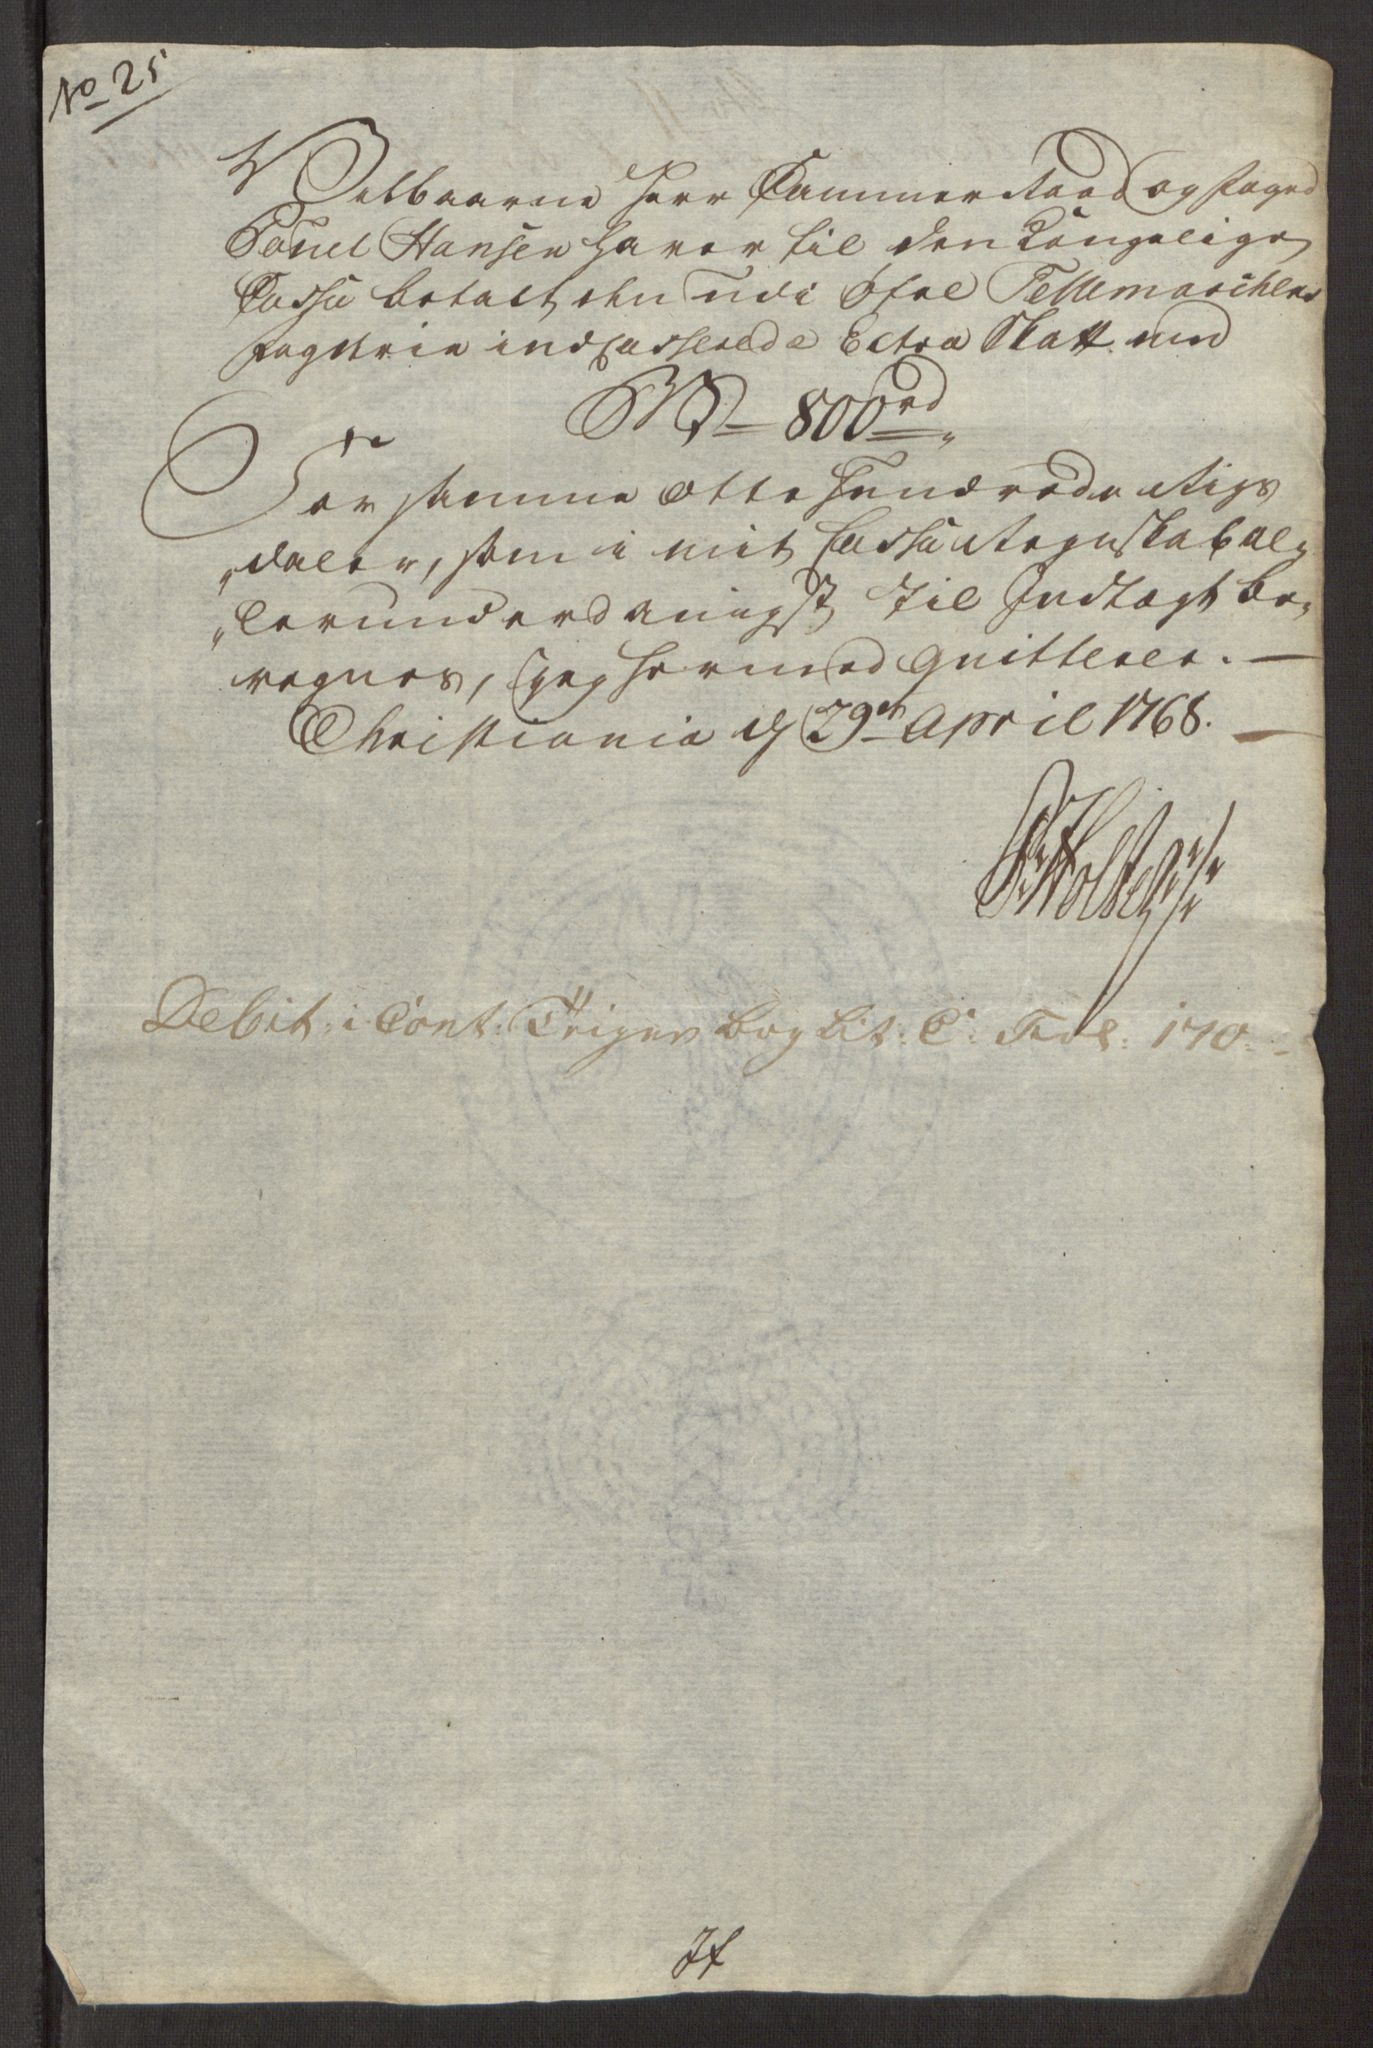 No 25
Velbaarne Herr Cammer Raad og Foged
Povel Hansen haver til den Kongelige
Cassa betalt den udi Øfre Tellemarchens
Fogderie indcasserede Extra Skatt med
800 rd
For samme Otte Hundrede Rigs
daler, som i mit Cassa Regnskab al-
lerunderdanigst til Indtægt be-
regnes, jeg hermed quitterer. —
Christiania d 29de April 1768. —
Debit: i Cont: bog Lit: C: Fol: 170.